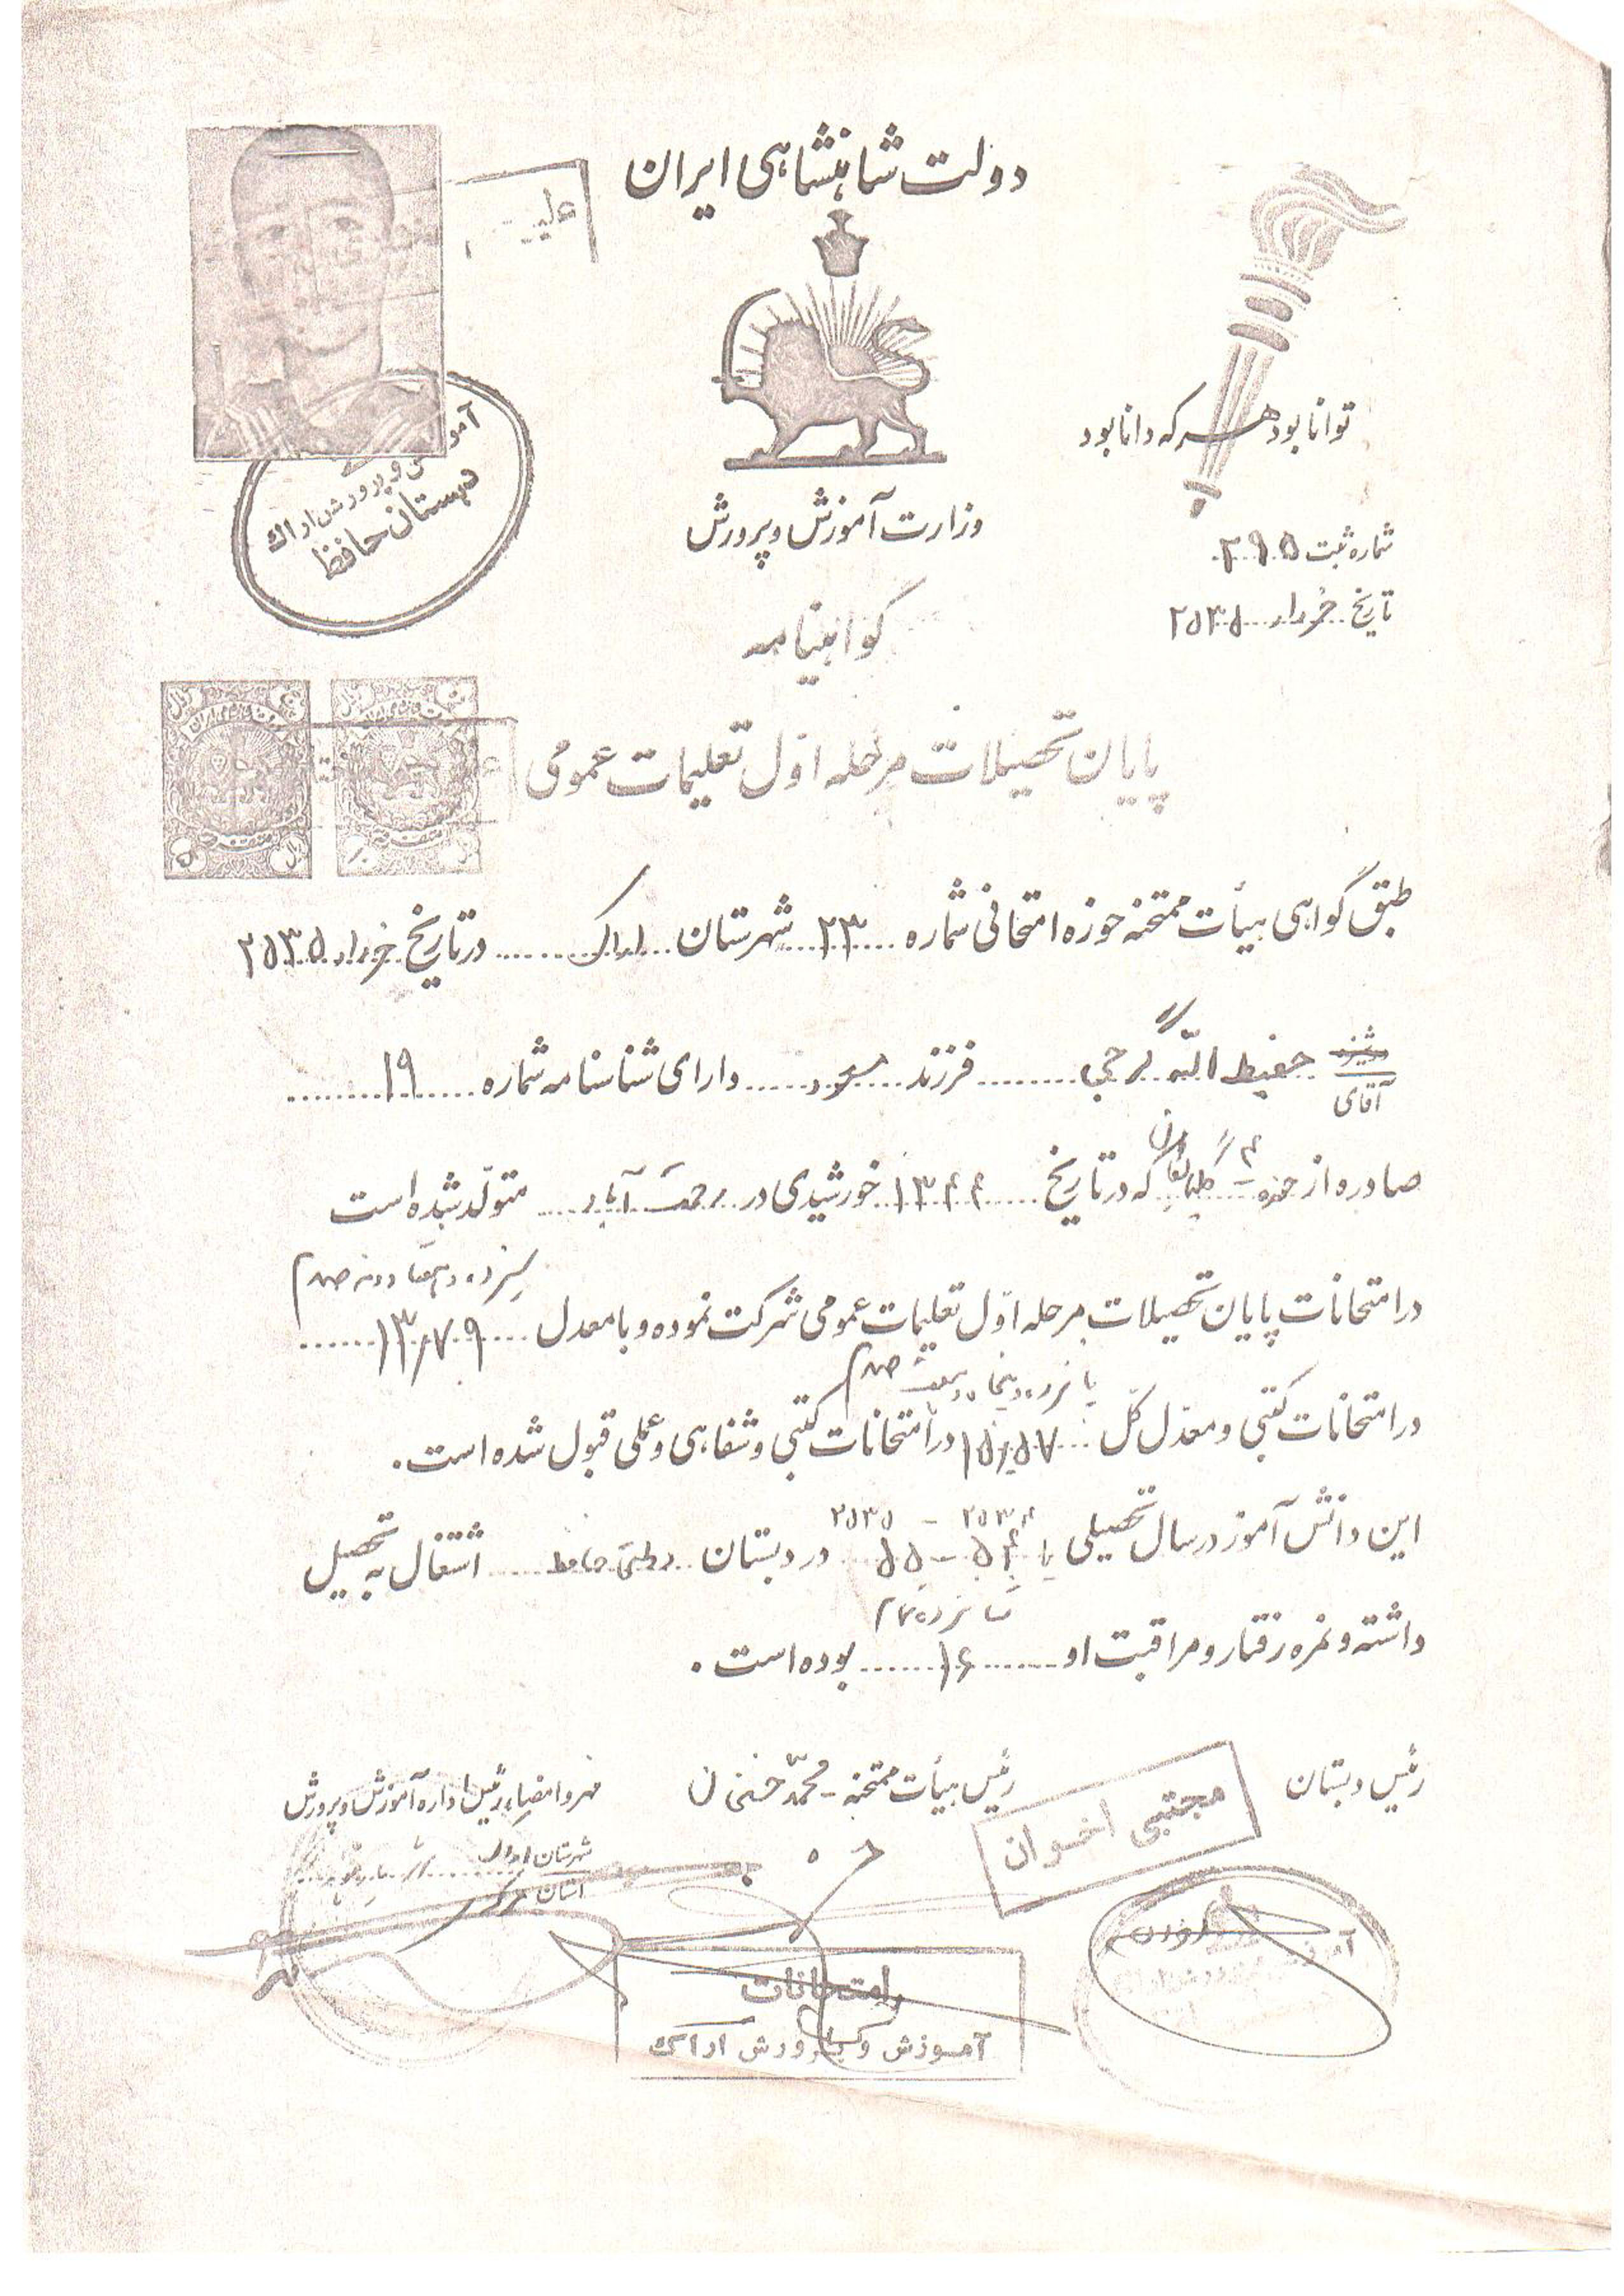 دولت شاهنشاهی ایران
توانا بود هر که دانا بود
وزارت آموزش و پرورش
شماره ثبت ۲۹۵
تاریخ خرداد ۲۵۳۵
آموزش و پرورش اراک
دبستان حافظ
گواهینامه
پایان تحصیلات مرحله اول تعلیمات عمومی
طبق گواهی هیأت ممتحنه حوزه امتحانی شماره ۲۳ شهرستان اراک در تاریخ خرداد ۲۵۳۵
دوشیزه
آقای حفیظ الله گرجی فرزند دارای شناسنامه شماره ۱۹
صادره از حوزه ۴ که در تاریخ ۱۳۴۴ خورشیدی در رحمت آباد متولد شده است
سیزده و هفتاد و نه صدم
در امتحانات پایان تحصیلات مرحله اول تعلیمات عمومی شرکت نموده و با معدل ۱۳/۷۹
پانزده و پنجاه و هفت صدم
در امتحانات کتبی و معدل کل ۱۵/۵۷ در امتحانات کتبی و شفاهی و عملی قبول شده است.
۲۵۳۴ - ۲۵۳۵
این دانش آموز در سال تحصیلی ۵۴ - ۵۵ در دبستان دولتی حافظ اشتغال به تحصیل
شانزده تمام
داشته و نمره رفتار و مراقبت او ۱۶ بوده است.
رئیس دبستان
مجتبی اخوان
رئیس هیأت ممتحنه - محمد
مهر و امضاء رئیس اداره آموزش و پرورش
شهرستان اراک
استان مرکزی
امتحانات
آموزش و پرورش اراک